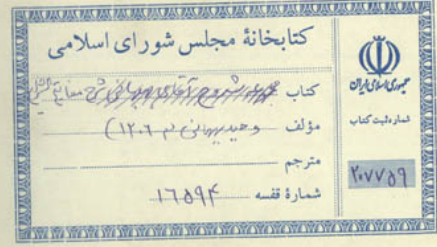 کتابخانهٔ مجلس شورای اسلامی
کتاب شرح مفاتیح الشرایع
مؤلف وحید بهبهانی (م ۱۲۰۶)
مترجم
شمارهٔ قفسه ۱۶۵۹۴
جمهوری اسلامی ایران
شماره ثبت کتاب
۲۰۷۷۵۹